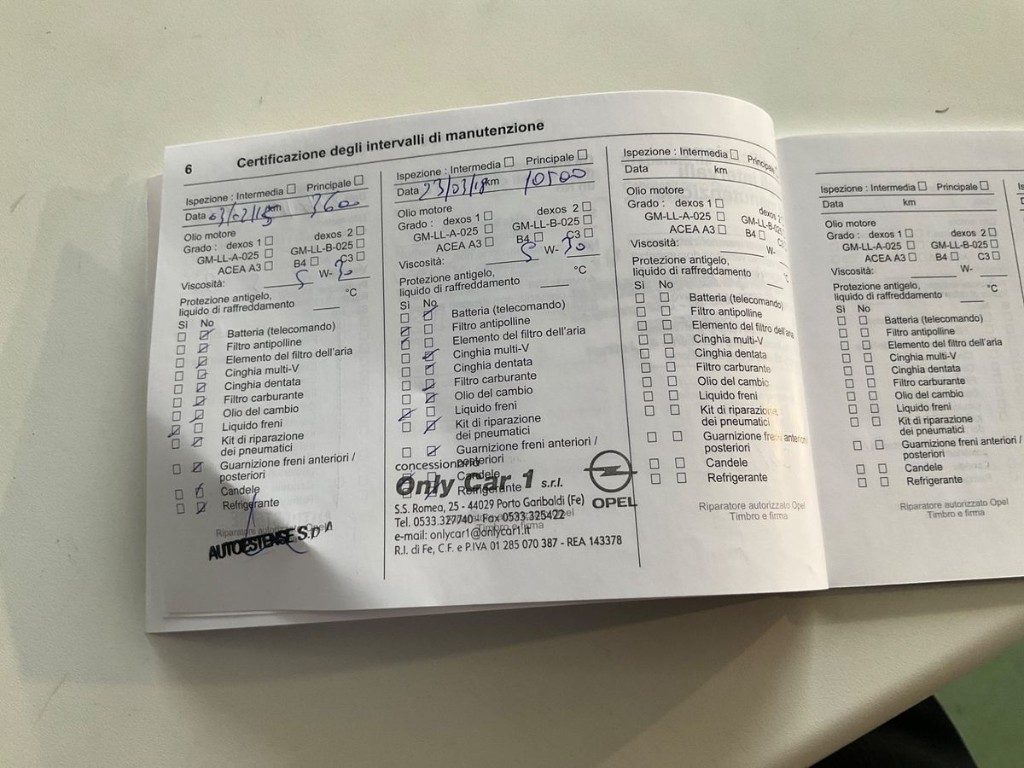 6 Certificazione degli intervalli di manutenzione
Ispezione : Intermedia Principale
Data 03/02/15 km 3600
Olio motore
Grado : dexos 1 dexos 2
GM-LL-A-025 GM-LL-B-025
ACEA A3 B4 C3
Viscosità: 5 W- 30
Protezione antigelo,
liquido di raffreddamento °C
Sì No
Batteria (telecomando)
Filtro antipolline
Elemento del filtro dell'aria
Cinghia multi-V
Cinghia dentata
Filtro carburante
Olio del cambio
Liquido freni
Kit di riparazione
dei pneumatici
Guarnizione freni anteriori /
posteriori
Candele
Refrigerante
Riparatore
AUTOESTENSE S.p.A
Ispezione : Intermedia Principale
Data 23/03/18 km 10500
Olio motore
Grado : dexos 1 dexos 2
GM-LL-A-025 GM-LL-B-025
ACEA A3 B4 C3
Viscosità: 5 W- 30
Protezione antigelo,
liquido di raffreddamento °C
Sì No
Batteria (telecomando)
Filtro antipolline
Elemento del filtro dell'aria
Cinghia multi-V
Cinghia dentata
Filtro carburante
Olio del cambio
Liquido freni
Kit di riparazione
dei pneumatici
Guarnizione freni anteriori /
posteriori
Candele
Refrigerante
concessionario
Only Car 1 s.r.l.
OPEL
S.S. Romea, 25 - 44029 Porto Garibaldi (Fe)
Tel. 0533.327740 - Fax 0533.325422
e-mail: onlycar1@onlycar1.it
R.I. di Fe, C.F. e P.IVA 01 285 070 387 - REA 143378
Timbro e firma
Ispezione : Intermedia Principale
Data km
Olio motore
Grado : dexos 1 dexos
GM-LL-A-025 GM-LL-B-02
ACEA A3 B4 C3
Viscosità: W-
Protezione antigelo,
liquido di raffreddamento °C
Sì No
Batteria (telecomando)
Filtro antipolline
Elemento del filtro dell'aria
Cinghia multi-V
Cinghia dentata
Filtro carburante
Olio del cambio
Liquido freni
Kit di riparazione
dei pneumatici
Guarnizione freni anteriori
posteriori
Candele
Refrigerante
Riparatore autorizzato Opel
Timbro e firma
Ispezione : Intermedia Principale
Data km
Olio motore
Grado : dexos 1 dexos 2
GM-LL-A-025 GM-LL-B-025
ACEA A3 B4 C3
Viscosità: W-
Protezione antigelo,
liquido di raffreddamento °C
Sì No
Batteria (telecomando)
Filtro antipolline
Elemento del filtro dell'aria
Cinghia multi-V
Cinghia dentata
Filtro carburante
Olio del cambio
Liquido freni
Kit di riparazione
dei pneumatici
Guarnizione freni anteriori /
posteriori
Candele
Refrigerante
Riparatore autorizzato Opel
Timbro e firma